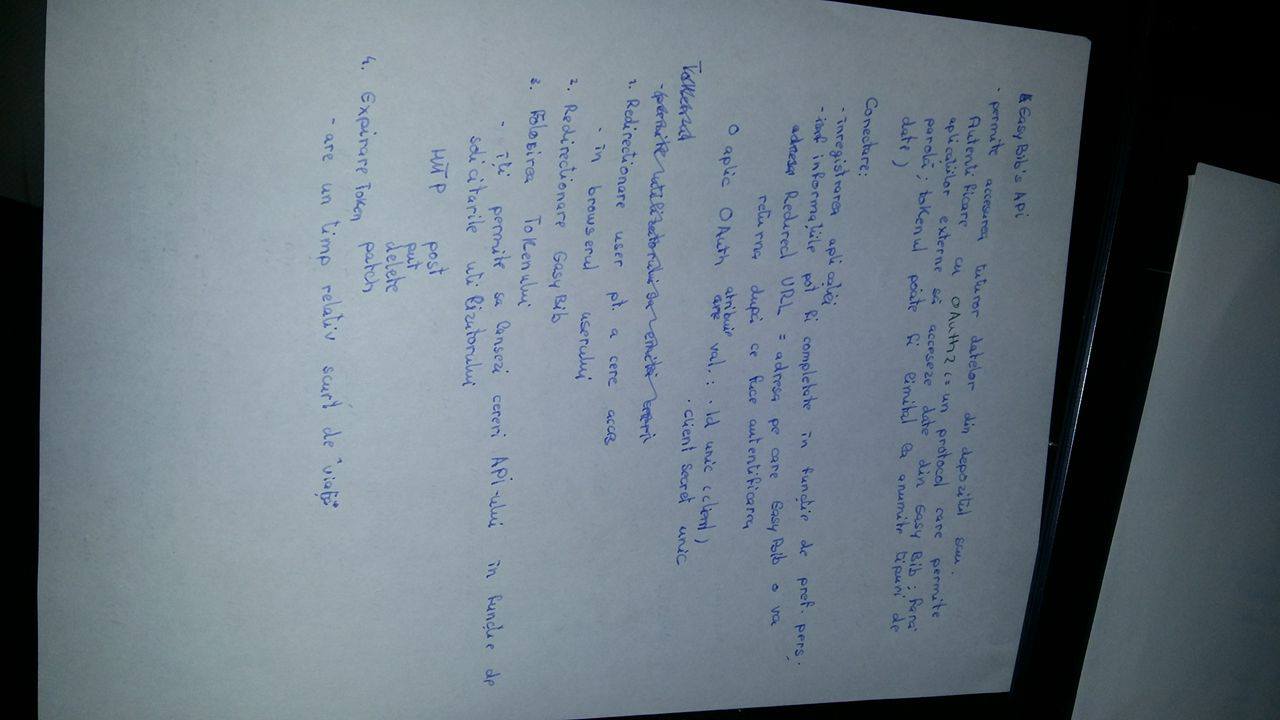 EasyBib's Api
- permite accesarea tuturor datelor din depozitul sau.
Autentificare cu OAuth2 (= un protocol care permite
aplicațiilor externe să acceseze date din EasyBib; fără
parolă; tokenul poate fi limitat la anumite tipuri de
date)
Conectare:
- înregistrarea aplicației
- informațiile pot fi completate în funcție de pref. pers.
adresa Redirect URL = adresa pe care EasyBib o va
returna după ce face autentificarea
O aplic OAuth atribuie
are val.: . Id unic (client)
. client secret unic
Tokenul
- permite utilizatorului sa
1. Redirectionare user pt. a cere acces
- în browserul userului
2. Redirectionare EasyBib
3. Folosirea Tokenului
- îți permite sa lansezi cereri API-ului în funcție de
solicitarile utilizatorului
HTTP post
put
delete
patch
4. Expirare Token
- are un timp relativ scurt de "viață"